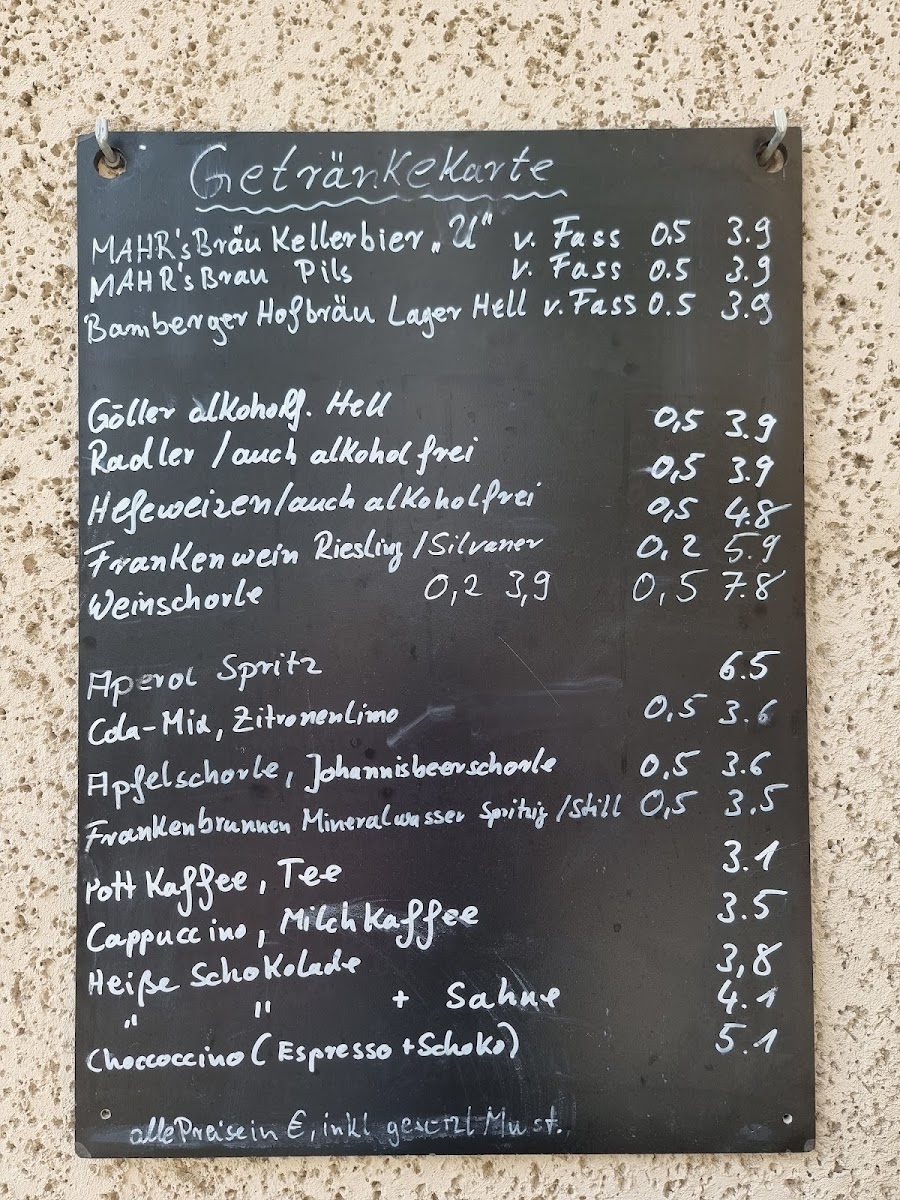 Getränkekarte
MAHR's Bräu Kellerbier „U" v. Fass 0.5 3.9
MAHR's Brau Pils v. Fass 0.5 3.9
Bamberger Hofbräu Lager Hell v. Fass 0.5 3.9
Göller alkoholf. Hell 0,5 3.9
Radler / auch alkoholfrei 0,5 3.9
Hefeweizen/auch alkoholfrei 0,5 4.8
Frankenwein Riesling / Silvaner 0,2 5.9
Weinschorle 0,2 3,9 0,5 7.8
Aperol Spritz 6.5
Cola-Mix, Zitronenlimo 0,5 3.6
Apfelschorle, Johannisbeerschorle 0,5 3.6
Frankenbrunnen Mineralwasser Spritzig / Still 0,5 3.5
Pott Kaffee, Tee 3.1
Cappuccino, Milchkaffee 3.5
Heiße Schokolade 3,8
" " + Sahne 4.1
Choccoccino (Espresso + Schoko) 5.1
alle Preise in €, inkl gesetzl Mwst.